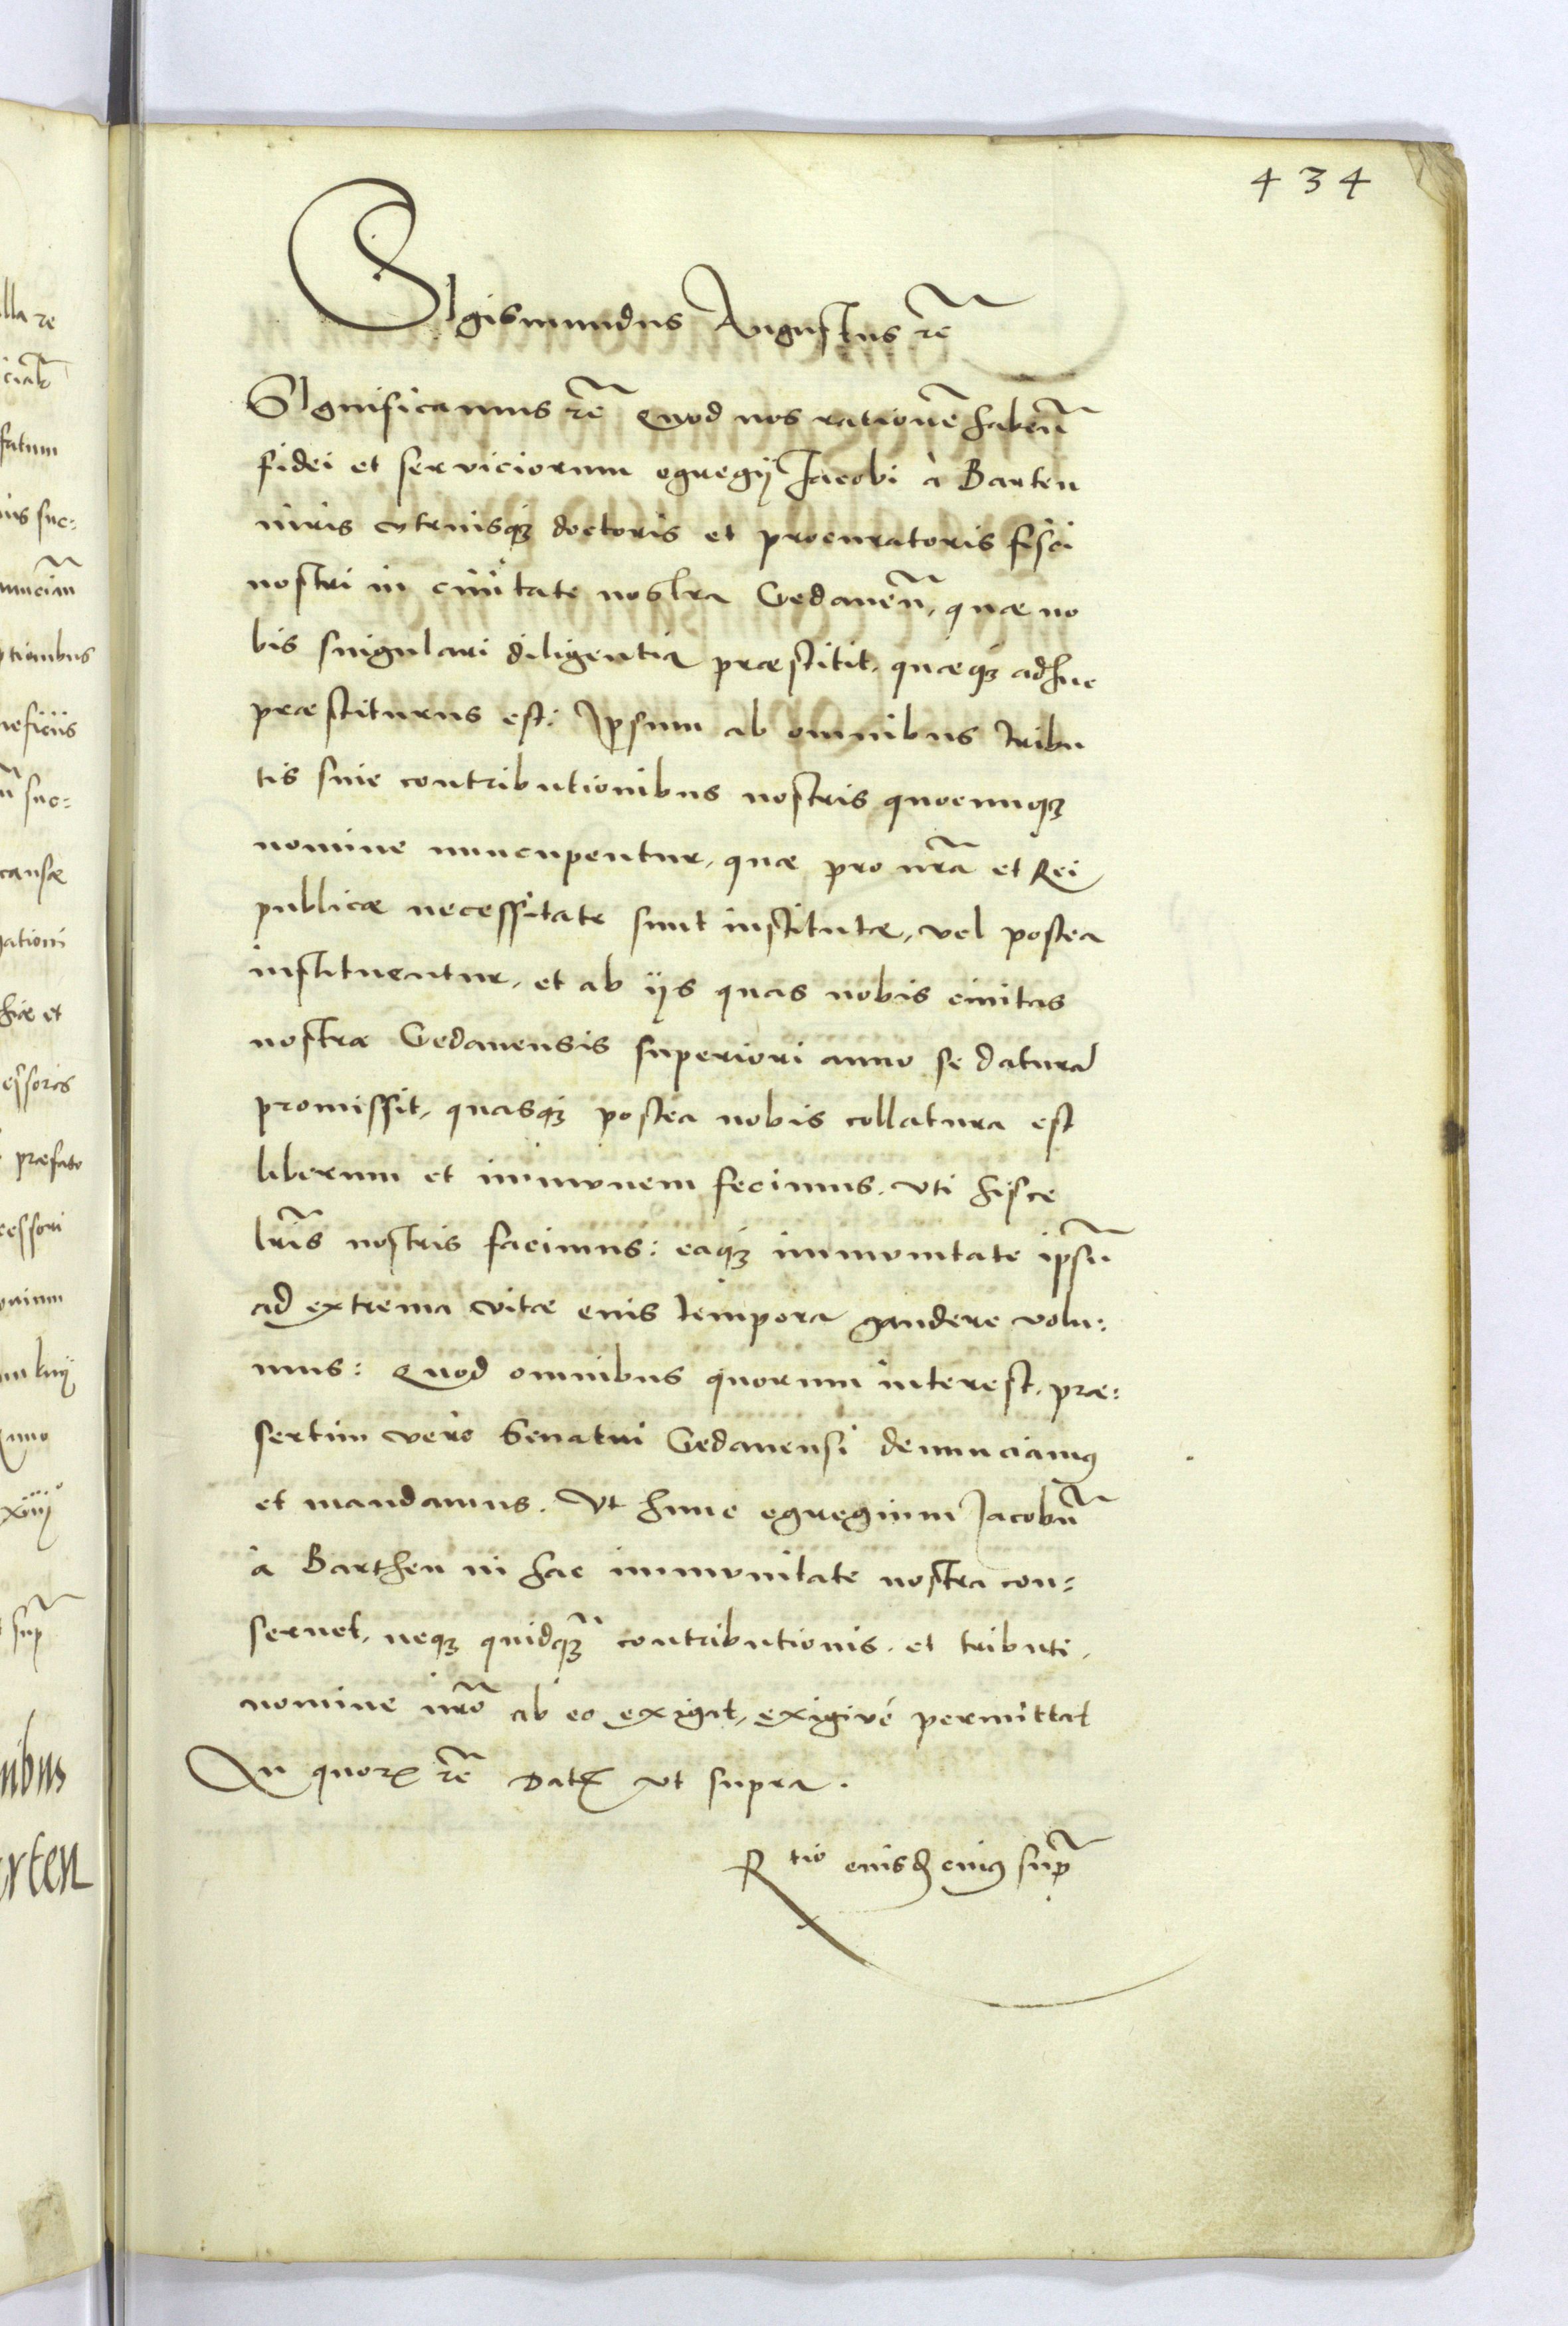 434
SIgismundus Augustus rẽ
SIgnificamus rẽ Quod nos rationẽ habeñ
fidei et serviciorum egregij Jacobi à Barten
iuris vtriusq3 doctoris et procuratoris fisci
nostri in ciuitate nostra Gedaneñ, quae no
bis singulari diligentia praestitit, quaeq3 adhuc
praestiturus est: Ipsum ab omnibus tribu
tis siue contributionibus nostris quocunq3
nomine nuncupentur, quae pro nrã et Rei
publicae necessitate sunt institutae, vel postea
instituentur, et ab ijs quas nobis ciuitas
nostra Gedanensis superiori anno se daturã
promissit, quasq3 postea nobis collatura est
liberum et immunem fecimus. vti hisce
lrĩs nostris facimus: eaq3 immunitate ipsũ
ad extrema vitae eius tempora gaudere volu:
mus: Quod omnibus quorum interest, prae:
sertim vero Senatui Gedanensi denunciamus
et mandamus. Vt hunc egregium Jacobũ
à Barthen in hac immunitate nostra con:
seruet, neq3 quidq3 contributionis et tributi,
nomine nrõ ab eo exigat, exigivé permittat
In quorum rẽ Dat ut supra.
Rtio eiusd cuius sup̃
lla re
fatum
tionibus
neficiis
causae
gationi
hiae et
essoris
praefato
cessori
sup̃
nibus
rten